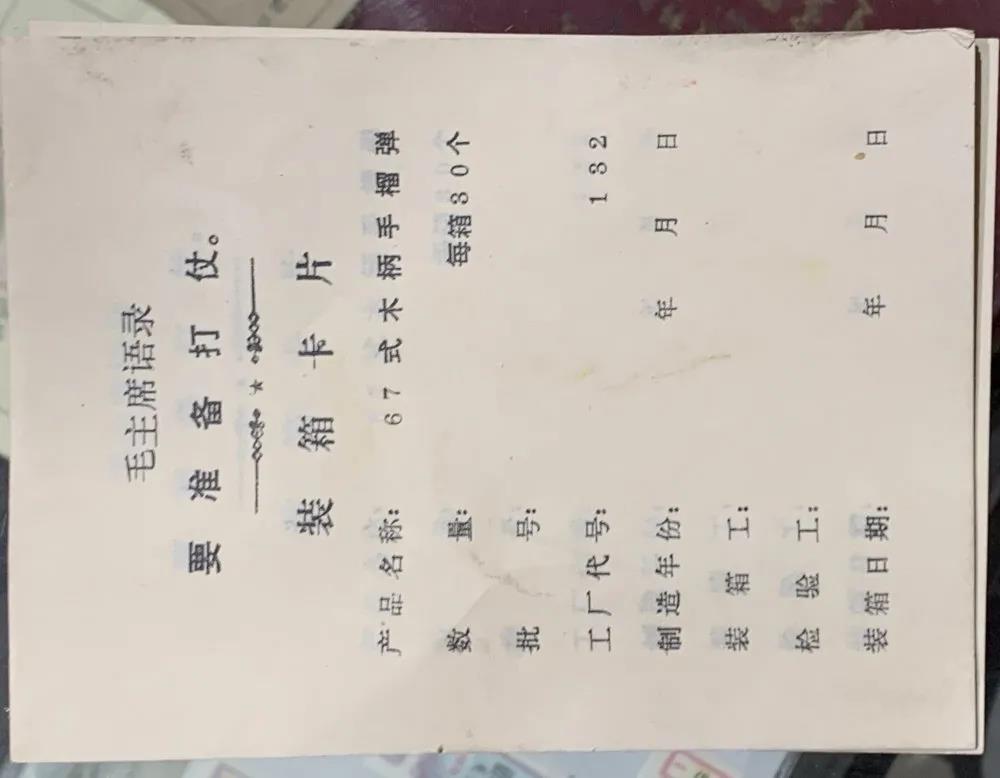 毛主席语录
要准备打仗。
装箱卡片
产品名称：67式木柄手榴弹
数量：每箱30个
批号：
工厂代号：132
制造年份：年月日
装箱工：
检验工：
装箱日期：年月日